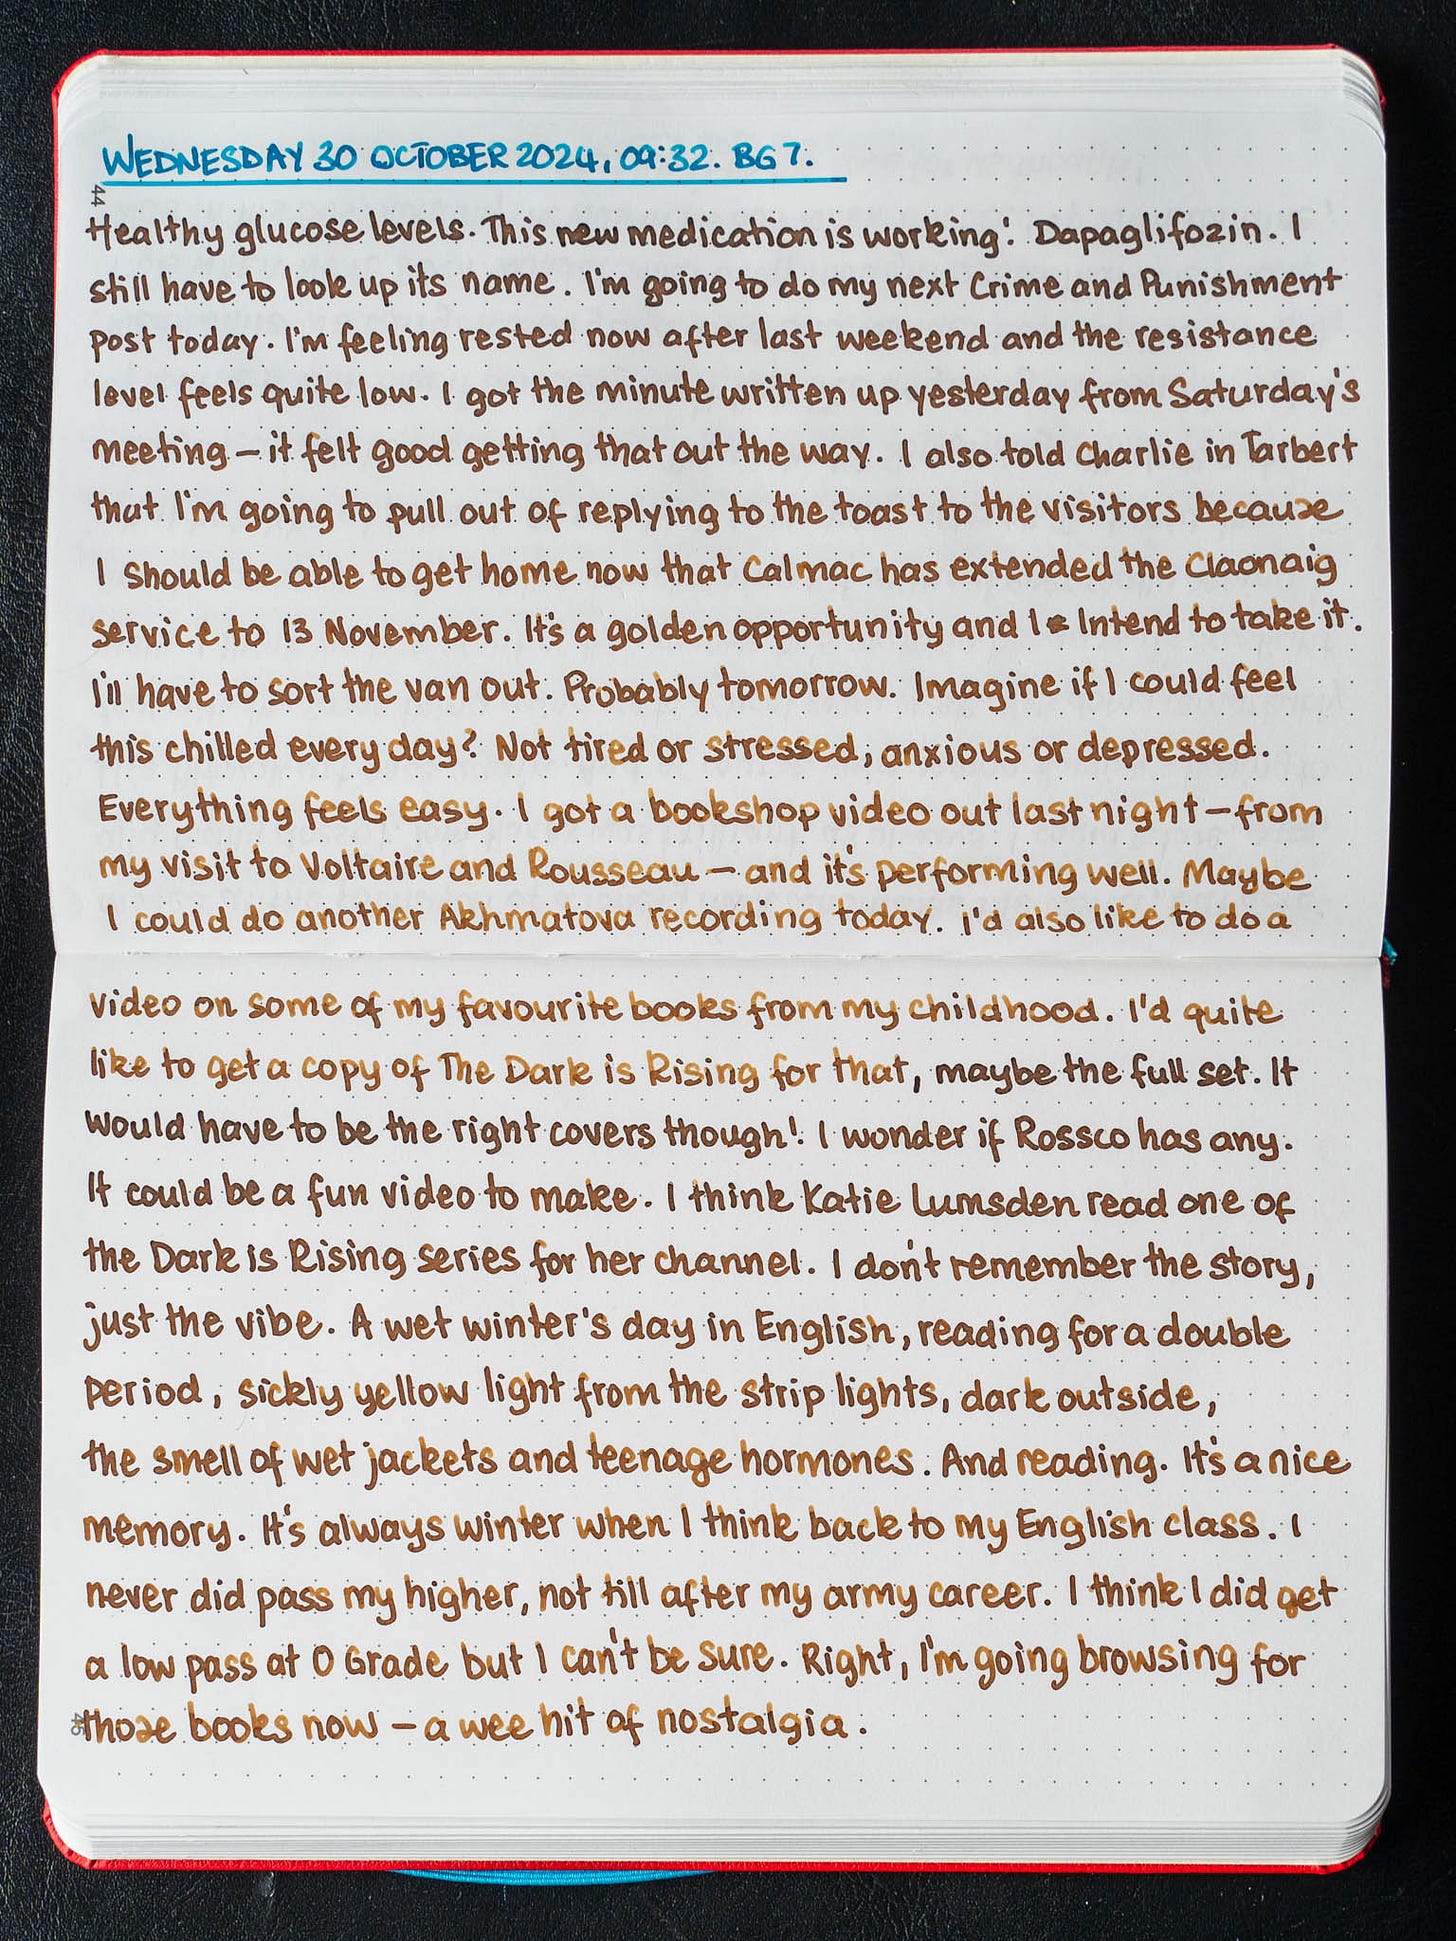 WEDNESDAY 30 OCTOBER 2024, 09:32. BG 7.
44
Healthy glucose levels. This new medication is working! Dapaglifozin. I
still have to look up its name. I'm going to do my next Crime and Punishment
post today. I'm feeling rested now after last weekend and the resistance
level feels quite low. I got the minute written up yesterday from Saturday's
meeting – it felt good getting that out the way. I also told Charlie in Tarbert
that I'm going to pull out of replying to the toast to the visitors because
I should be able to get home now that Calmac has extended the Claonaig
service to 13 November. It's a golden opportunity and I Intend to take it.
I'll have to sort the van out. Probably tomorrow. Imagine if I could feel
this chilled every day? Not tired or stressed, anxious or depressed.
Everything feels easy. I got a bookshop video out last night – from
my visit to Voltaire and Rousseau – and it's performing well. Maybe
I could do another Akhmatova recording today. I'd also like to do a
video on some of my favourite books from my childhood. I'd quite
like to get a copy of The Dark is Rising for that, maybe the full set. It
would have to be the right covers though! I wonder if Rossco has any.
It could be a fun video to make. I think Katie Lumsden read one of
the Dark is Rising series for her channel. I don't remember the story,
just the vibe. A wet winter's day in English, reading for a double
period, sickly yellow light from the strip lights, dark outside,
the smell of wet jackets and teenage hormones. And reading. It's a nice
memory. It's always winter when I think back to my English class. I
never did pass my higher, not till after my army career. I think I did get
a low pass at O Grade but I can't be sure. Right, I'm going browsing for
those books now – a wee hit of nostalgia.
45